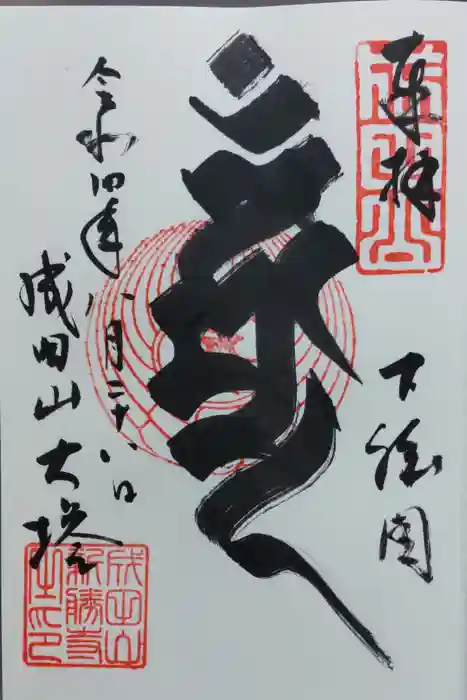 奉拝
下総国
令和四年八月二十八日
成田山大塔
成田山
新勝寺
之印